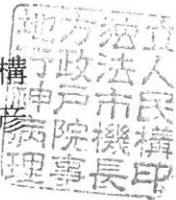 構
彦
地方独立
行政法人
神戸市民
病院機構
理事長印